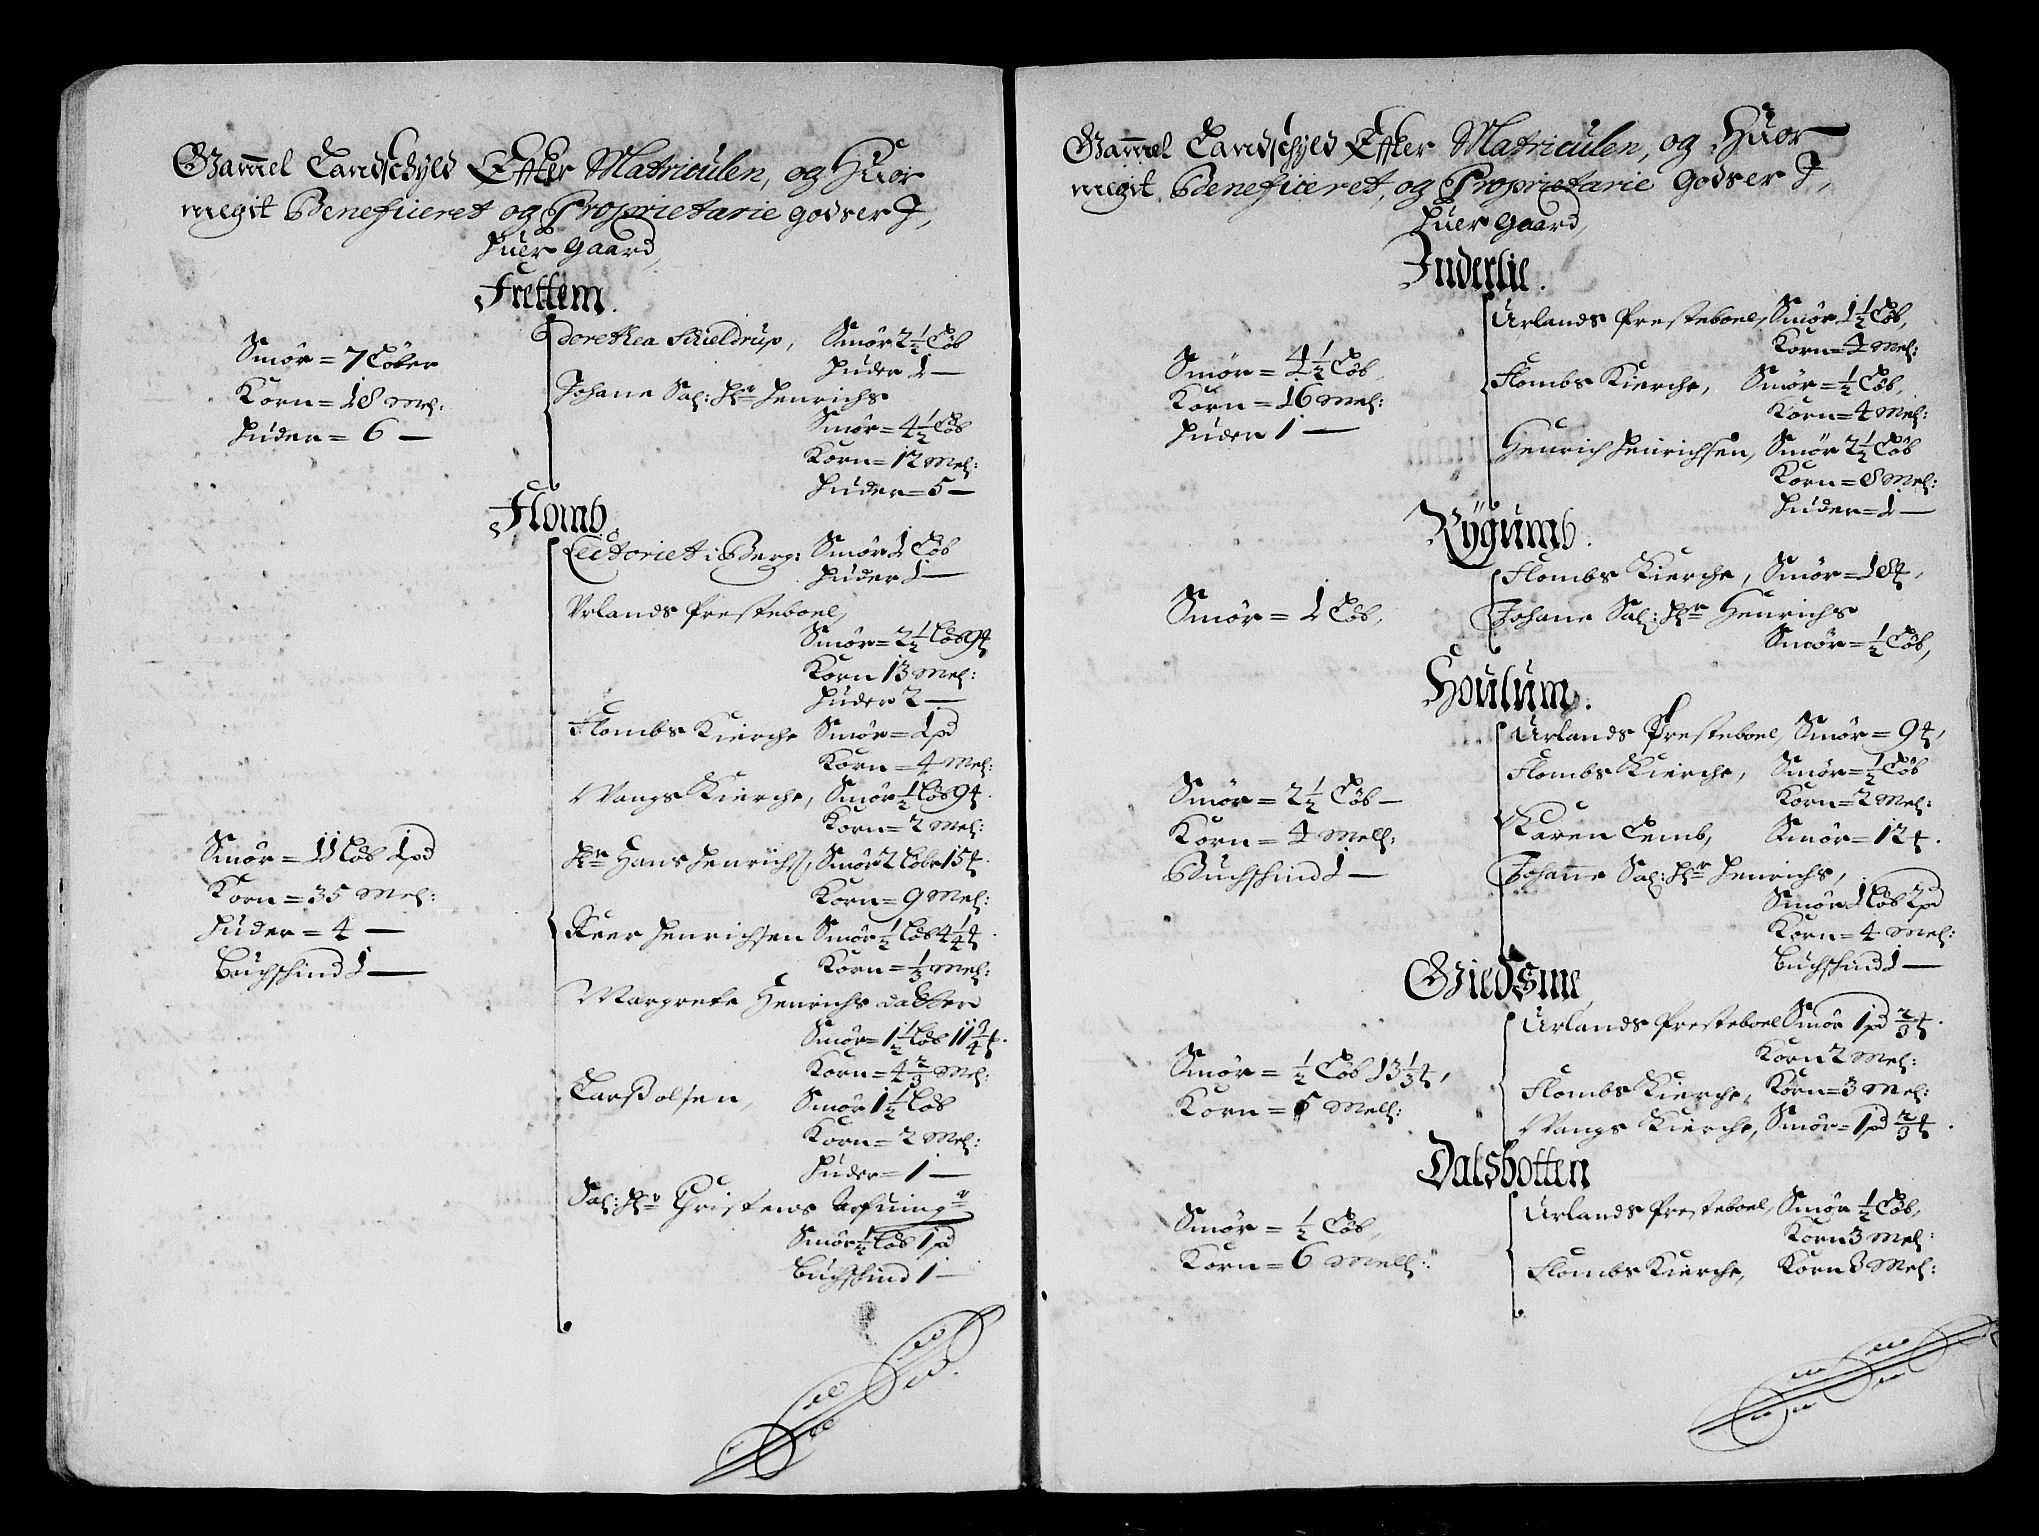 Gammel Landschyld Effter Matriculen, og Huor
megit Beneficeret og Proprietarie godser I,
huer Gaard,
Frettem.
Smør = 7 Løber
Korn = 18 Mel:
Huder = 6 —
Dorethea Schieldrup, Smør 2½ Løb
Huder 1 —
Johane Sal: Hr Henrichs
Smør = 4½ Løb
Korn = 12 Mel:
Huder = 5 —
Flomb.
Smør = 11 Løb 1 pd
Korn = 35 Mel:
Huder = 4 —
Buchschind 1 —
Lectoriet i Berg: Smør 1 Løb
Huder 1 —
Urlands Presteboel,
Smør = 2½ Løb 9 ℔
Korn 13 Mel:
Huder 2 —
Flombs Kierche Smør = 1 pd
Korn = 4 Mel:
Wangs Kierche, Smør ½ Løb 9 ℔.
Korn = 2 Mel:
Hr Hans Henrichs, Smør 2 Løbr 15 ℔.
Korn = 9 Mel:
Peer Henrichsen Smør ½ Løb 4¼ ℔.
Korn = ⅓ Mel:
Margrete Henrichs datter
Smør = 1½ Løb 11¾ ℔.
Korn = 4⅔ Mel:
Larss olsen, Smør 1½ Løb
Korn = 2 Mel:
Huder = 1 —
Sal: Hr Christens Arfuingr
Smør ½ Løb 1 pd
Buchschind 1 —
Gammel Landschyld Effter Matriculen, og Huor
megit Beneficeret, og Proprietarie Godser I,
huer Gaard,
Inderlie.
Smør = 4½ Løb,
Korn = 16 Mel:
Huder 1 —
Urlands Presteboel, Smør 1½ Løb,
Korn = 4 Mel:
Flombs Kierche, Smør = ½ Løb,
Korn = 4 Mel:
Henrich Henrichsen, Smør 2½ Løb
Korn = 8 Mel:
Huder = 1 —
Rÿgumb.
Smør = 1 Løb,
Flombs Kierche, Smør = 18 ℔,
Johane Sal: Hr Henrichs
Smør = ½ Løb,
Houlum.
Smør = 2½ Løb —
Korn = 4 Mell:
Buchschind 1 —
Urlands Presteboel, Smør = 9 ℔,
Flombs Kierche, Smør = ½ Løb
Korn = 2 Mel:
Karen Lemb, Smør = 12 ℔.
Johanne Sal: Hr Henrichs,
Smør 1 Løb 2 pd
Korn = 4 Mel:
Buchschind 1 —
Giedsme,
Smør = ½ Løb 13⅓ ℔,
Korn = 5 Mell:
Urlands Presteboel Smør 1 pd ⅔ ℔.
Korn 2 Mel:
Flombs Kierche, Korn = 3 Mel:
Wangs Kierche, Smør = 1 pd ⅔ ℔.
Dalsbotten
Smør = ½ Løb,
Korn = 6 Mell:
Urlands Presteboel, Smør ½ Løb,
Korn 3 Mel:
Flombs Kierche, Korn 3 Mel: